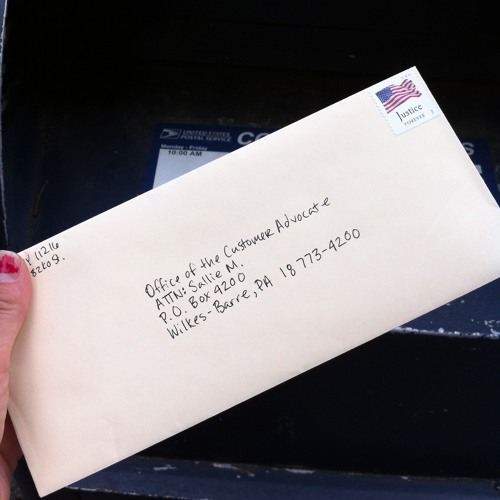 UNITED STATES
POSTAL SERVICE
CO
Monday - Friday
10:00 AM
Justice
FOREVER
11216
Office of the Customer Advocate
ATTN: Sallie M.
P.O. Box 4200
Wilkes-Barre, PA 18773-4200